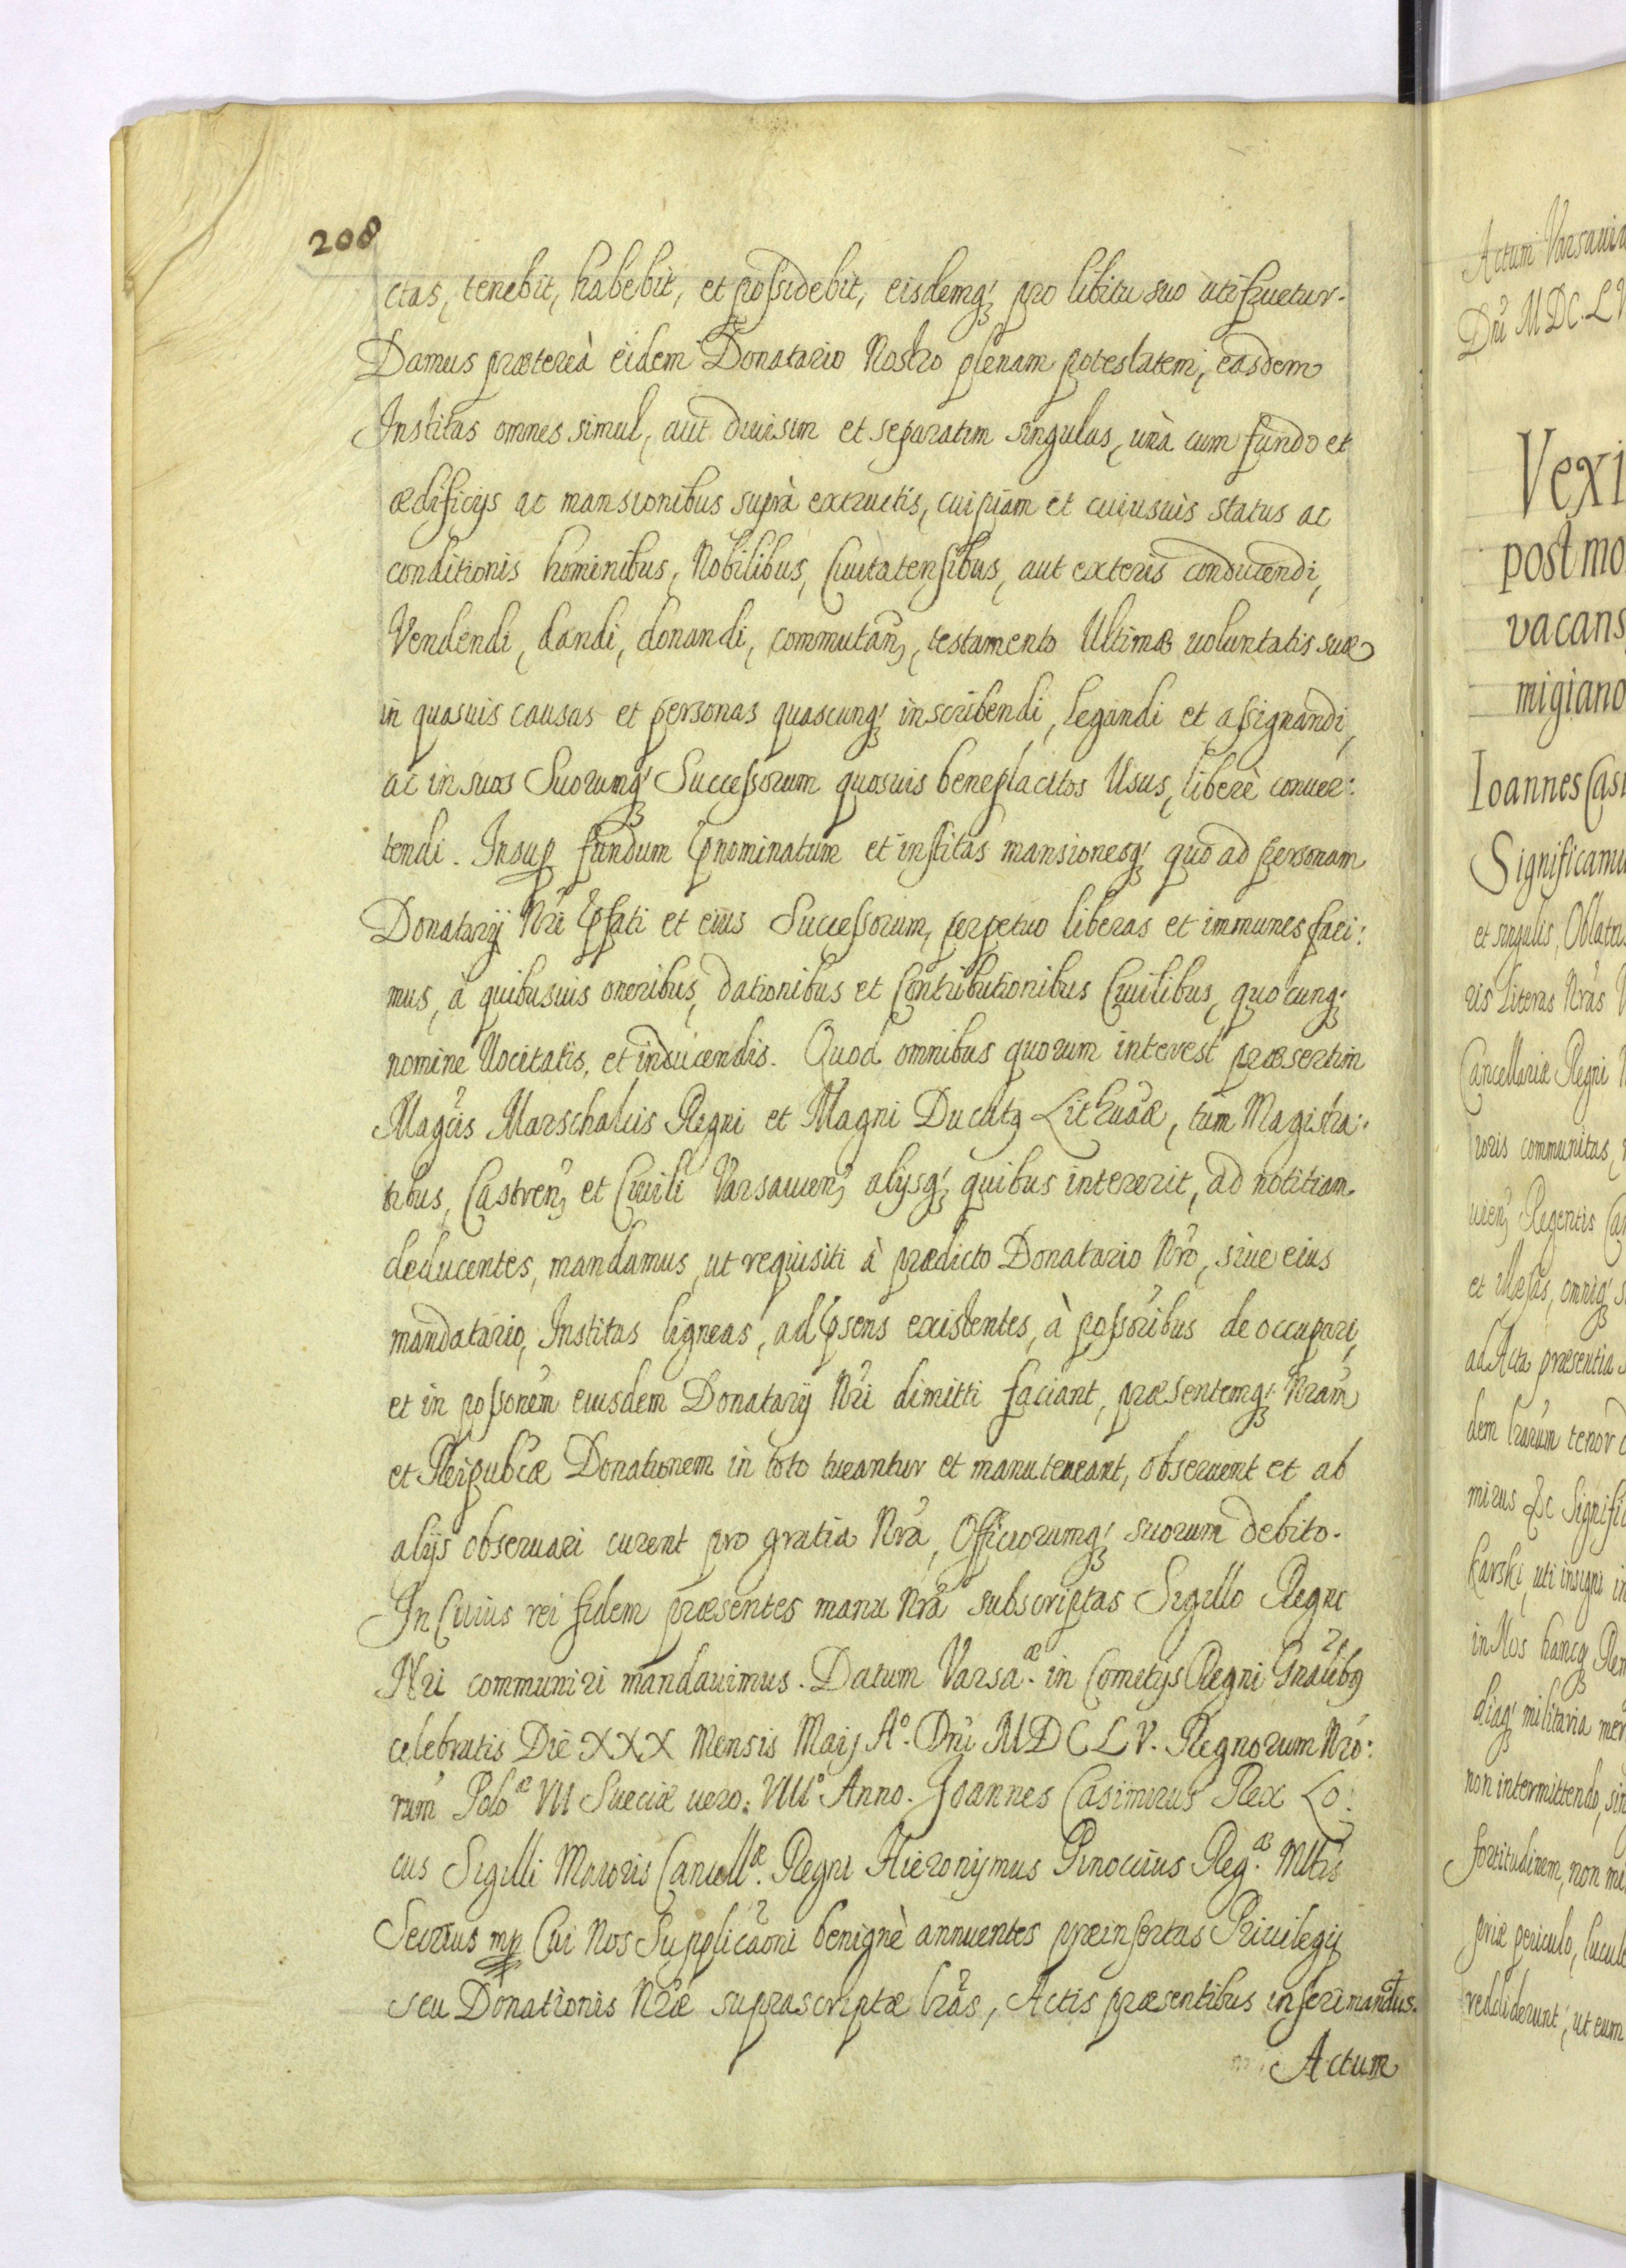 208
ctas, tenebit, habebit, et possidebit, eisdemq; pro libitu suo utifruetur.
Damus prætereà eidem Donatario Nostro plenam potestatem, easdem
Institas omnes simul, aut diuisim et separatim singulas, unà cum fundo et
ædificijs ac mansionibus suprà extructis, cuipiam et cuiusuis status ac
conditionis hominibus, Nobilibus, Ciuitatensibus, aut exteris conducendi,
Vendendi, dandi, donandi, commutan, testamento Ultimæ uoluntatis suæ
in quasuis causas et personas quascunq; inscribendi, legandi et assignandi,
ac in suos Suorumq; Successorum quosuis beneplacitos Usus, liberè conuer:
tendi. Insup fundum pnominatum et institas mansionesq; quo ad personam
Donatarij Nri pfati et eius Successorum, perpetuo liberas et immunes faci:
mus, à quibusuis oneribus, dationibus et Contributionibus Ciuilibus, quocunq;
nomine Uocitatis, et inducendis. Quod omnibus quorum interest præsertim
Magcis Marschalcis Regni et Magni Ducatq Lithuaæ, tum Magistra:
tibus, Castren, et Ciuili Varsauien, alijsq; quibus intererit, ad notitiam
deducentes, mandamus, ut requisiti à prædicto Donatario Nro, siue eius
mandatario, Institas ligneas, ad psens existentes, à possoribus de occupari,
et in possonem eiusdem Donatarij Nri dimitti faciant, præsentemq; Nram
et Reipubcæ Donationem in toto tueantur et manuteneant, obseruent et ab
alijs obseruari curent pro gratia Nra, Officiorumq; suorum debito.
In Cuius rei fidem præsentes manu Nra subscriptas Sigillo Regni
Nri communiri mandauimus. Datum Varsaæ. in Comitijs Regni Gnalibq
celebratis Die XXX Mensis Maij Aº. Dni MDCLV. Regnorum Nro:
rum Poloæ VII Sueciæ uero: VIIIº Anno. Joannes Casimirus Rex Lo:
cus Sigilli Maioris Cancellæ. Regni Hieronijmus Pinoccius Regæ. Mttis
Secrius mp Cui Nos Supplicaoni benignè annuentes præinsertas Priuilegij
seu Donationis Nræ suprascriptæ lras, Actis præsentibus inseri mandus.
Actum
Actum Varsauia
Dni MDC.LV
Vexi
post mo
vacans
migiano
Ioannes Casi
Significamu
et singulis, Oblatas
ris literas Nras
Cancellariæ Regni
ioris communitas,
uien, Regentis Ca
et illæsas, omniq; s
ad Acta præsentia
dem lrarum tenor
mirus &c Signific
karski, uti insigni in
in Nos hancq; Rem
diaq; militaria mer
non intermittendo, sin
fortitudinem, non mi
priæ periculo, lucule
reddiderunt, ut eum